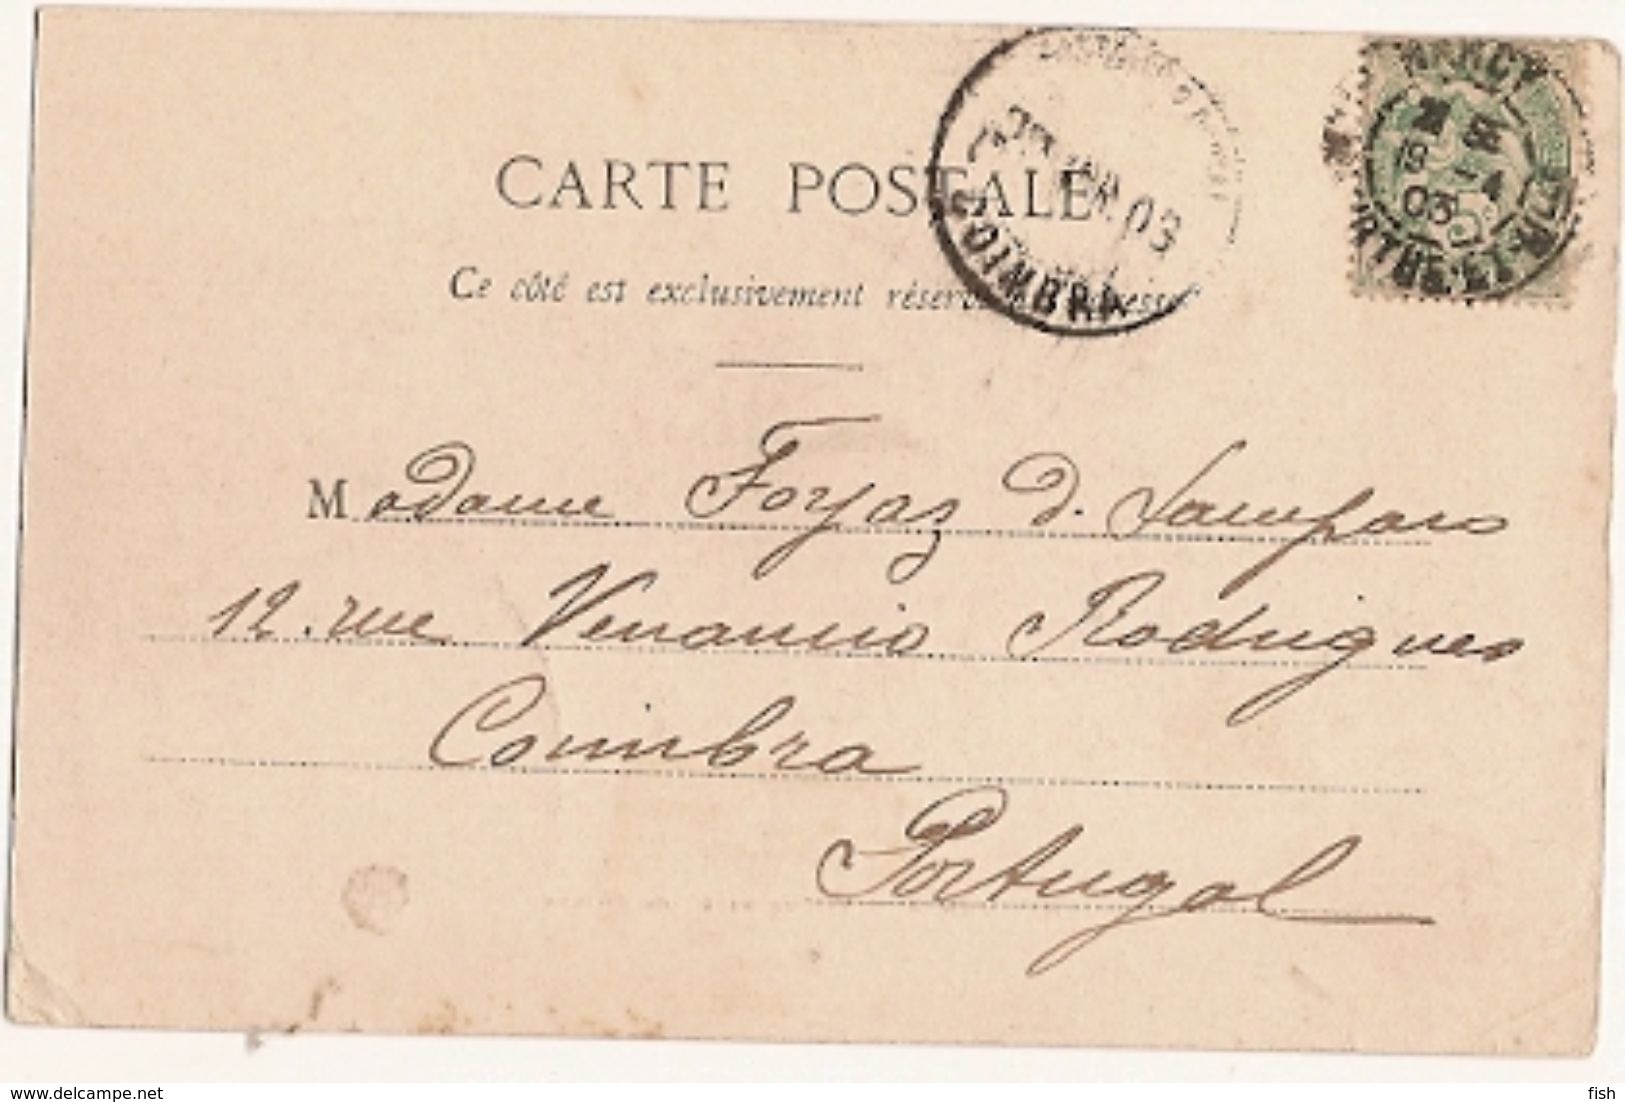 CARTE POSTALE
Ce côté est exclusivement réservé
COIMBRA
03
NANCY
19 -4
03
MEURTHE-ET-M
Madame Foryaz d. Sampaio
12. rue Venancio Rodrigues
Coimbra
Portugal
www.delcampe.net
fish